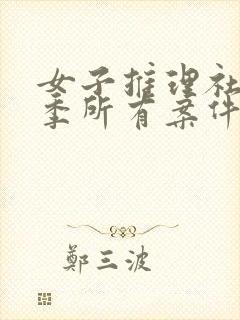 女子推理社
季所有案件
鄭三波